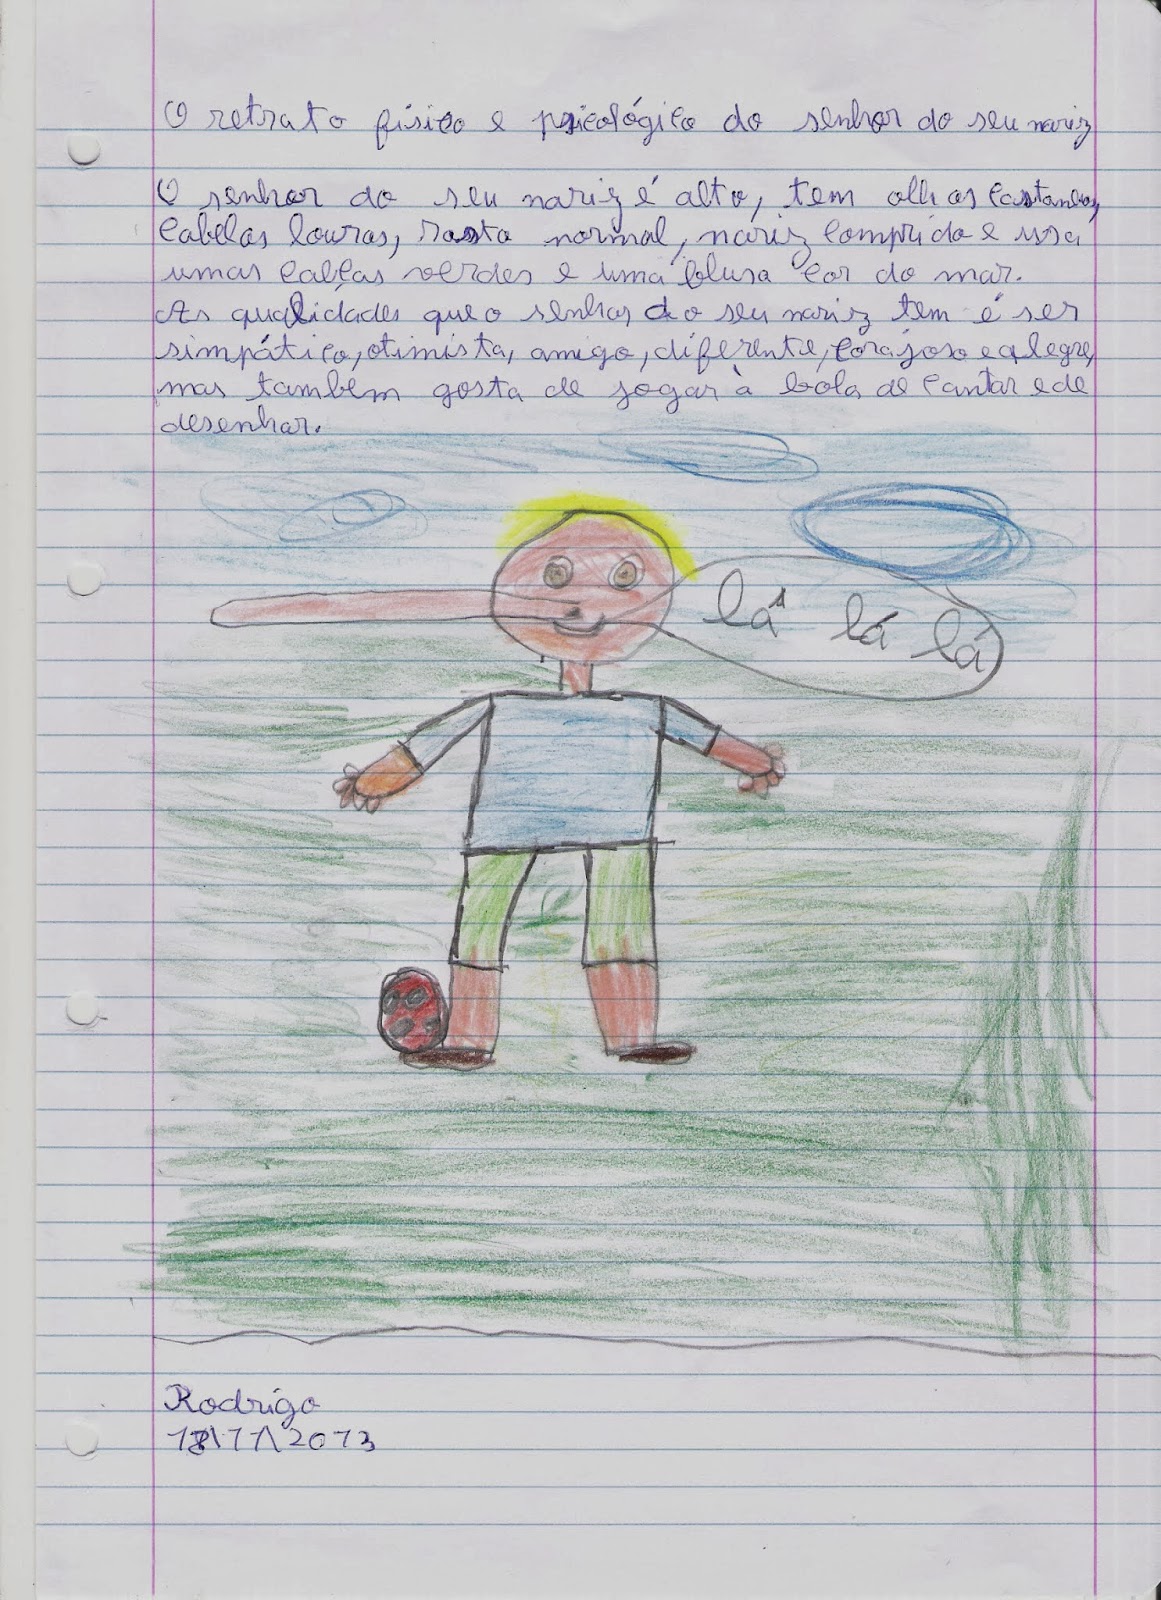 O retrato físico e psicológico do senhor do seu nariz
O senhor do seu nariz é alto, tem olhos castanhos,
cabelos louros, rosto normal, nariz comprido e usa
umas calças verdes e uma blusa cor do mar.
As qualidades que o senhor do seu nariz tem é ser
simpático, otimista, amigo, diferente, corajoso e alegre,
mas também gosta de jogar à bola de cantar e de
desenhar.
lá lá lá
Rodrigo
18\11\2013